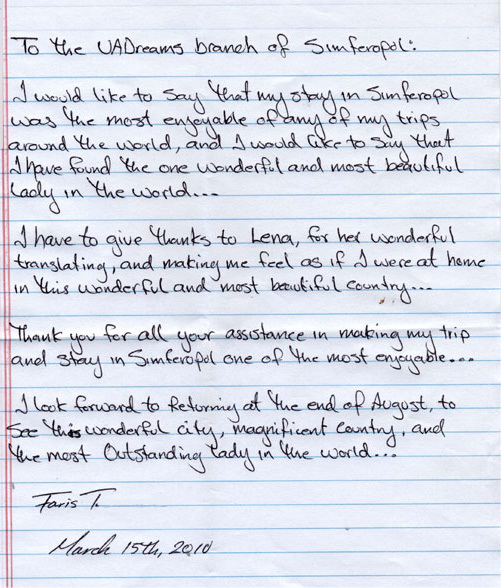 To the UADreams branch of Simferopol:
I would like to say that my stay in Simferopol
was the most enjoyable of any of my trips
around the world, and I would like to say that
I have found the one wonderful and most beautiful
lady in the world...
I have to give thanks to Lena, for her wonderful
translating, and making me feel as if I were at home
in this wonderful and most beautiful country...
Thank you for all your assistance in making my trip
and stay in Simferopol one of the most enjoyable...
I look forward to Returning at the end of August, to
see this wonderful city, magnificent country, and
the most Outstanding lady in the world...
Faris T.
March 15th, 2010